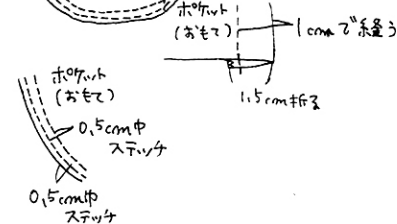 ポケット
(おもて)
1cmで縫う
1.5cm折る
ポケット
(おもて)
0.5cm巾
ステッチ
0.5cm巾
ステッチ